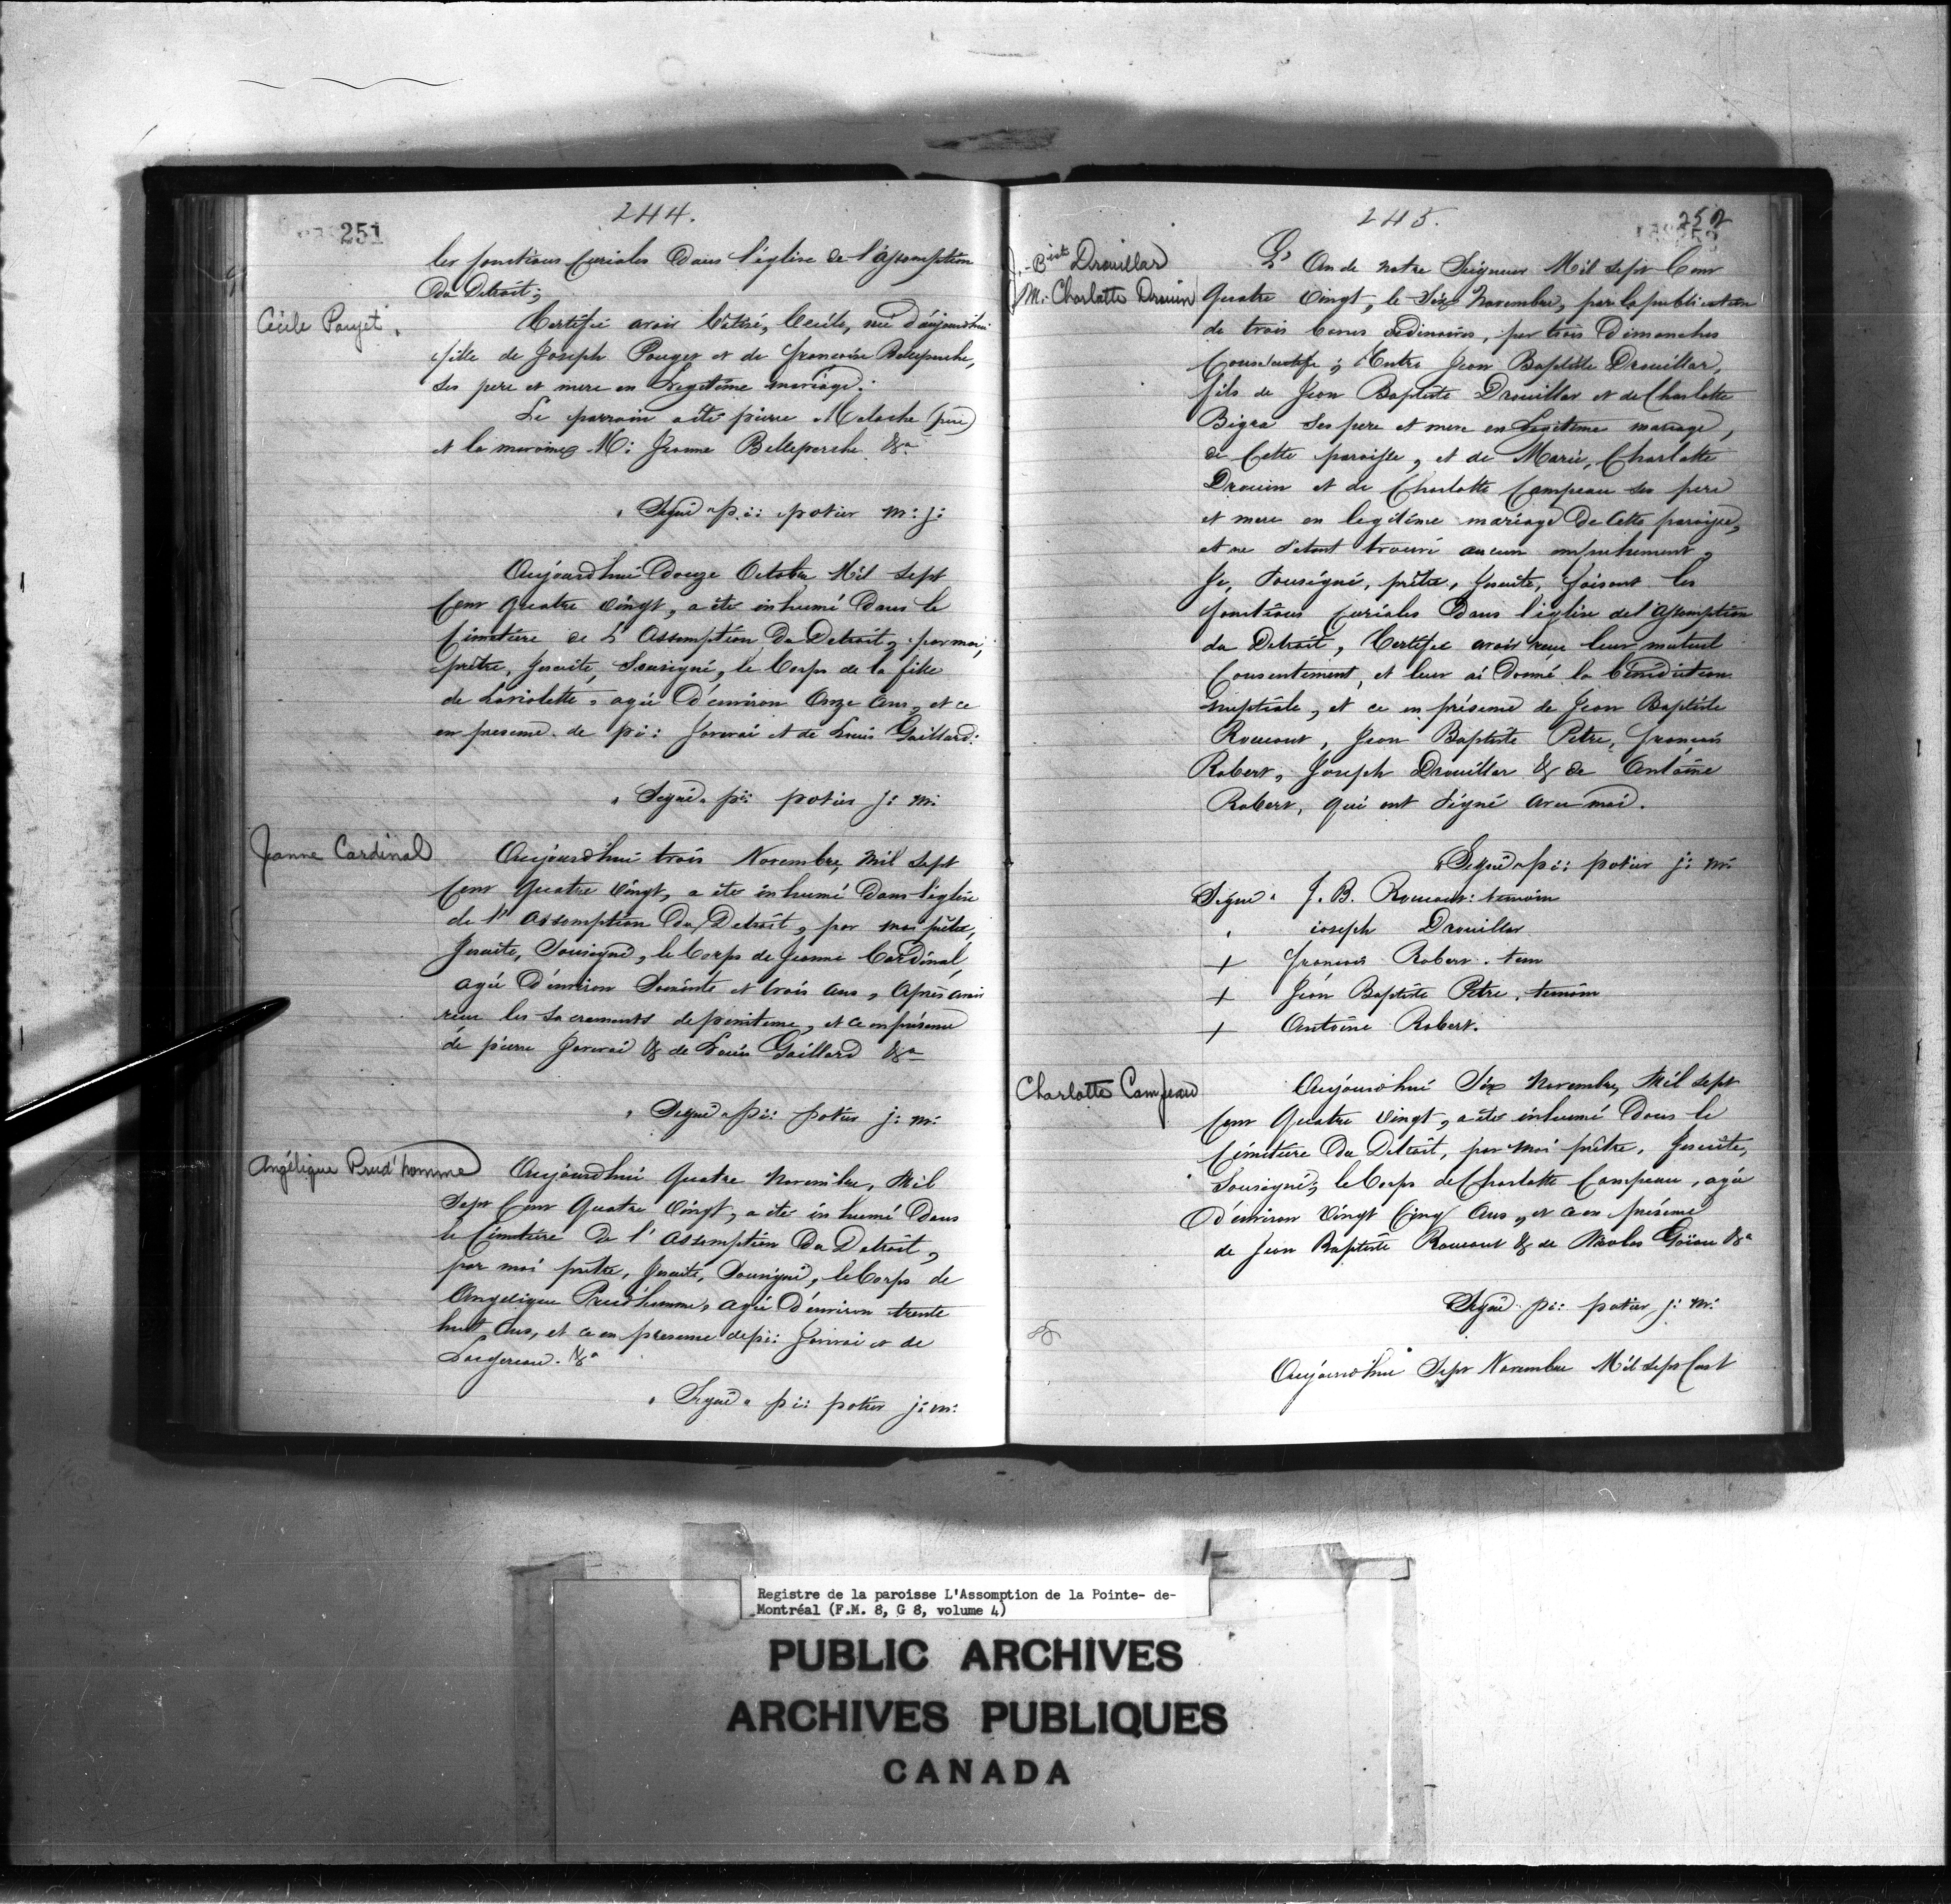 244.
251
les fonctions Curiales dans l'église de l'Assomption
du Detroit;
Cécile Poujet.
Certifie avoir bâtisé, Cecile, née d'aujourd'hui
fille de Joseph Pouget et de francoise Belleperche,
ses pere et mere en Legitime mariage.
Le parrain a été pierre Meloche (pere)
et la maraine M: Jeanne Belleperche &a
Signé pi: potier m: j:
Aujourd'hui Douze Octobre Mil sept
Cent Quatre vingt, a été inhumé Dans le
Cimetière de L'Assomption Du Detroit, par moi,
prêtre, Jesuite, Sousigné, le Corps de la fille
de Laviolette, agée d'environ Onze ans, et ce
en presence de pi: Janvrai et de Louis Gaillard:
Signé pi: potier j: m:
Jeanne Cardinal
Aujourd'hui trois Novembre, Mil sept
Cent Quatre Vingt, a été inhumé Dans l'église
de l'Assomption Du Detroit, par moi prêtre,
Jesuite, Sousigné, le Corps de Jeanne Cardinal,
agée d'environ Soixante et trois ans, Après avoir
reçu les Sacrements de penitence, et ce en présence
de pierre Janvrai & de Louis Gaillard &a
Signé pi: potier j: m:
Angélique Prud'homme
Aujourd'hui Quatre Novembre, Mil
Sept Cent Quatre Vingt, a été inhumé Dans
le Cimetière De l'Assomption Du Detroit,
par moi prêtre, Jesuite, Sousigné, le Corps de
Angelique Prud'homme, agée d'environ trente
huit Ans, et ce en presence de pi: Janvrai et de
&a
Signé pi: potier j: m:
245.
252
J.-Bist Drouillar
M: Charlotte Drouin
L'An de notre Seigneur Mil Sept Cent
Quatre Vingt, le Six Novembre, par la publication
de trois bancs ordinaires, par trois Dimanches
Consecutifs; Entre Jean Baptiste Drouillar,
fils de Jean Baptiste Drouillar et de Charlotte
Bigra Ses pere et mere en Legitime mariage,
de Cette paroisse, et de Marie, Charlotte
Drouin et de Charlotte Campeau ses pere
et mere en legitime mariage De Cette paroisse,
et ne s'etant trouvé aucun empechement,
Je, Sousigné, prêtre, Jesuite, faisant les
fonctions Curiales Dans l'église de l'Assomption
du Detroit, Certifie avoir reçu leur mutuel
Consentement, et leur ai Donné la bénédiction
nuptiale, et ce en présence de Jean Baptiste
Roucout, Jean Baptiste Petre, francois
Robert, Joseph Drouillar & de Antoine
Robert, qui ont Signé avec moi.
Signé pi: potier j: m:
Signé J. B. Roucout: temoin
ioseph Drouillar
+ francois Robert. tem
+ Jean Baptiste Petre. temoin
+ Antoine Robert.
Charlotte Campeau
Aujourd'hui Six Novembre, Mil sept
Cent Quatre Vingt, a été inhumé Dans le
Cimetière Du Détroit, par moi prêtre, Jesuite,
Sousigné, le Corps de Charlotte Campeau, agée
D'environ Vingt Cinq Ans, et ce en présence
de Jean Baptiste Roucout & de Nicolas Goïau &a
Signé pi: potier j: m:
Aujourd'hui Sept Novembre Mil sept Cent
Registre de la paroisse L'Assomption de la Pointe- de-
Montréal (F.M. 8, G 8, volume 4)
PUBLIC ARCHIVES
ARCHIVES PUBLIQUES
CANADA